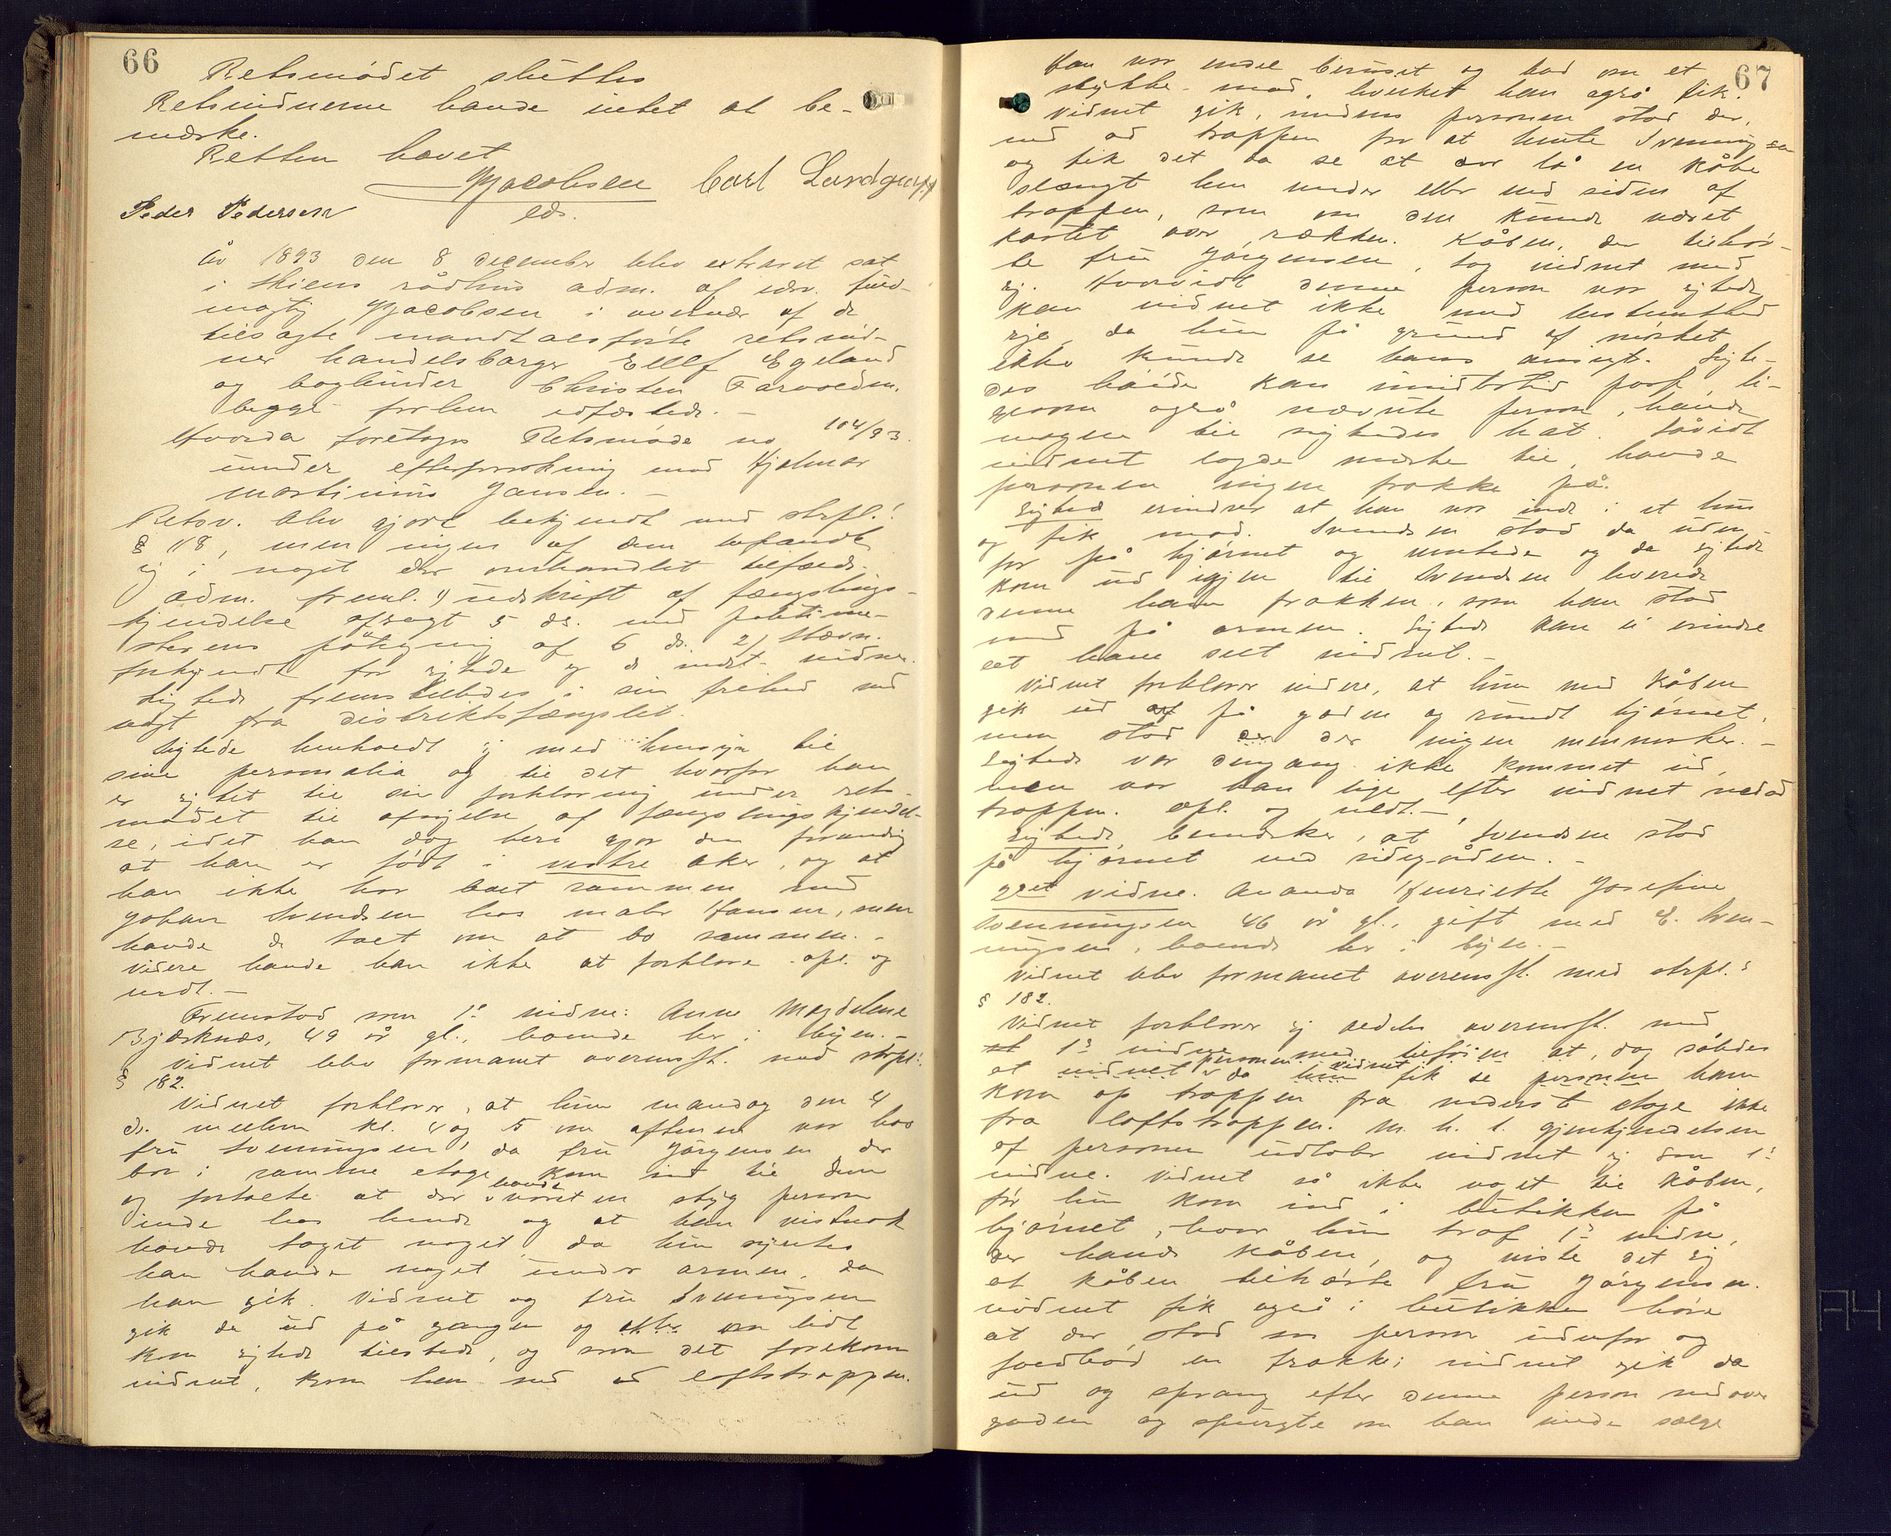 66
Retsmödet sluttes
Retsvidnerne havde intet at be-
mærke.
Retten hævet
Jacobsen Carl Lundgren
Peder Pedersen eds.
År 1893 den 8 december blev extraret sat
i Skiens rådhus adm. af edsv. fuld-
mægtig Jacobsen i overvær af de
tilsagte mandtalsførte retsvid-
ner handelsborger Ellef Egeland
og bogbinder Christen Farvolden.
begge forhen edfæstede. -
Hvorda foretoges Retsmøde no 104/93.
under efterforskning mod Hjalmar
Martinius Jansen. -
Retsv. blev gjort bekjendt med strpl.:
§ 118, men ingen af dem befandt
sig i noget der omhandlet tilfælde.
Adm. freml. 1) udskrift af fængslings-
kjendelse afsagt 5 ds. med politime-
sterens påtegning af 6 ds. 2) stævn.
forkyndt for sigtede og de indst. vidner.
Sigtede fremstilledes i sin frihed med
vagt fra distriktsfængslet.
Sigtede henholdt sig med hensyn til
sine personalia og til det hvorfor han
er sigtet til sin forklaring under rets-
mødet til afsigelse af fængslingskjendel-
se, idet han dog beri gjør den forandrig
at han er født i vestre Aker, og at
han ikke har boet sammen med
Johan Svendsen hos maler Hansen, men
havde de talt om at bo sammen. -
Videre havde han ikke at forklare. opl. og
vedt. -
Fremstod som 1ste vidne: Anne Magdelene
Bjærknæs, 49 år gl., boende her i byen. -
Vidnet blev formanet overensst. med strpl.:
§ 182.
Vidnet forklarer, at hun mandag den 4
ds. mellem kl. 4 og 5 om aftenen var hos
fru Svenningsen, da fru Jørgensen der
bor i samme etage kom ind til dem
og fortalte at der havde været en styg person
inde hos hende og at han vistnok
havde taget noget, da hun syntes
han havde noget under armen, da
han gik. Vidnet og fru Svenningsen
gik da ud på gangen og efter om lidt
kom sigtede tilstede, og som det forekom
vidnet, kom han ned ad loftstrappen.
67
Han var endel beruset og bad om et
stykke mad, hvilket han også fik.
Vidnet gik, medens personen stod der,
ned ad trappen for at hente Svenningsen
og fik det da se at der lå en kåbe
slængt hen under eller ved siden af
trappen, som om den kunde været
kastet over rækken. Kåben, der tilhør-
te fru Jørgensen, tog vidnet med
sig. Hvorvidt denne person var sigtede
kan vidnet ikke med bestemthed
sige, da hun på grund af mørket
ikke kunde se hans ansigt. Sigte-
des høide kan imidlertid passe, li-
gesom også nævnte person, havde
magen til sigtedes hat. Såvidt
vidnet lagde mærke til, havde
personen ingen frakke på.
Sigtede erindrer at han var inde i et hus
og fik mad. Svendsen stod da uden-
for på hjørnet og ventede og da sigtede
kom ud igjen til Svendsen leverede
denne ham frakken, som han stod
med på armen. Sigtede kan ei erindre
at have seet vidnet. -
Vidnet forklarer videre, at hun med kåben
gik ud på gaden og rundt hjørnet,
men stod der ingen mennesker. -
Sigtede var dengang ikke kommet ud,
men var han lige efter vidnet nedad
trappen. opl. og vedt. -
Sigtede bemærker, at Svendsen stod
på hjørnet ved sidegåden. -
2det vidne. Ananda Henriette Josefine
Svenningsen 46 år gl., gift med E. Sven-
ningsen, boende her i byen. -
Vidnet blev formanet overensst. med strpl.:
§ 182.
Vidnet forklarer sig aldeles overensst. med
1ste vidne med tilføien at, dog således
at vidnet da personen vidnet fik se personen ham
kom op trappen fra nederst etage ikke
fra loftstrappen. M. h. t. gjenkjendelsen
af personen udlader vidnet sig som 1ste
vidne. Vidnet så ikke noget til kåben,
før hun kom ind i butikken på
hjørnet, hvor hun traf 1ste vidne,
der havde kåben, og viste det sig
at kåben tilhørte fru Jørgensen.
Vidnet fik også i butikken høre
at der stod en person udenfor og
falbød en frakke; vidnet gik da
ud og sprang efter denne person nedover
gaden og spurgte om han vilde sælge